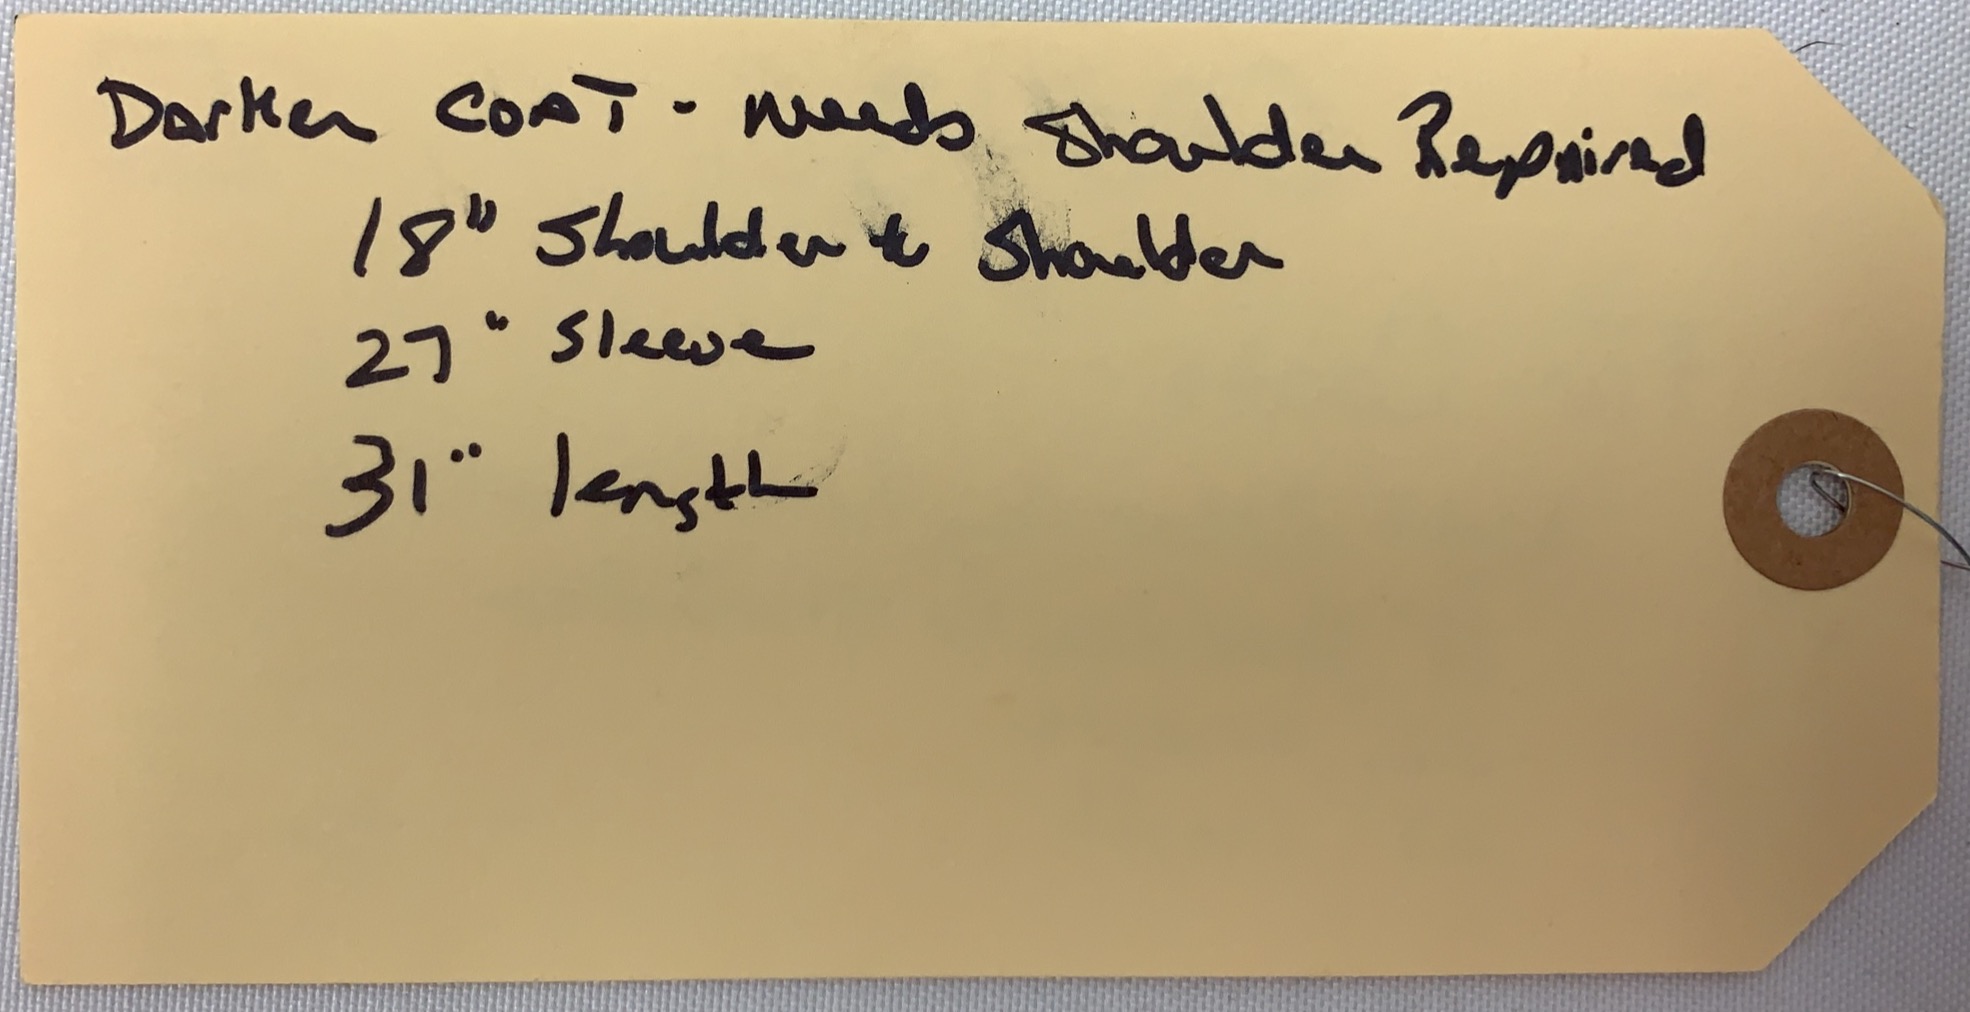 Darker COAT - needs Shoulder Repaired
18" Shoulder to Shoulder
27" Sleeve
31" length